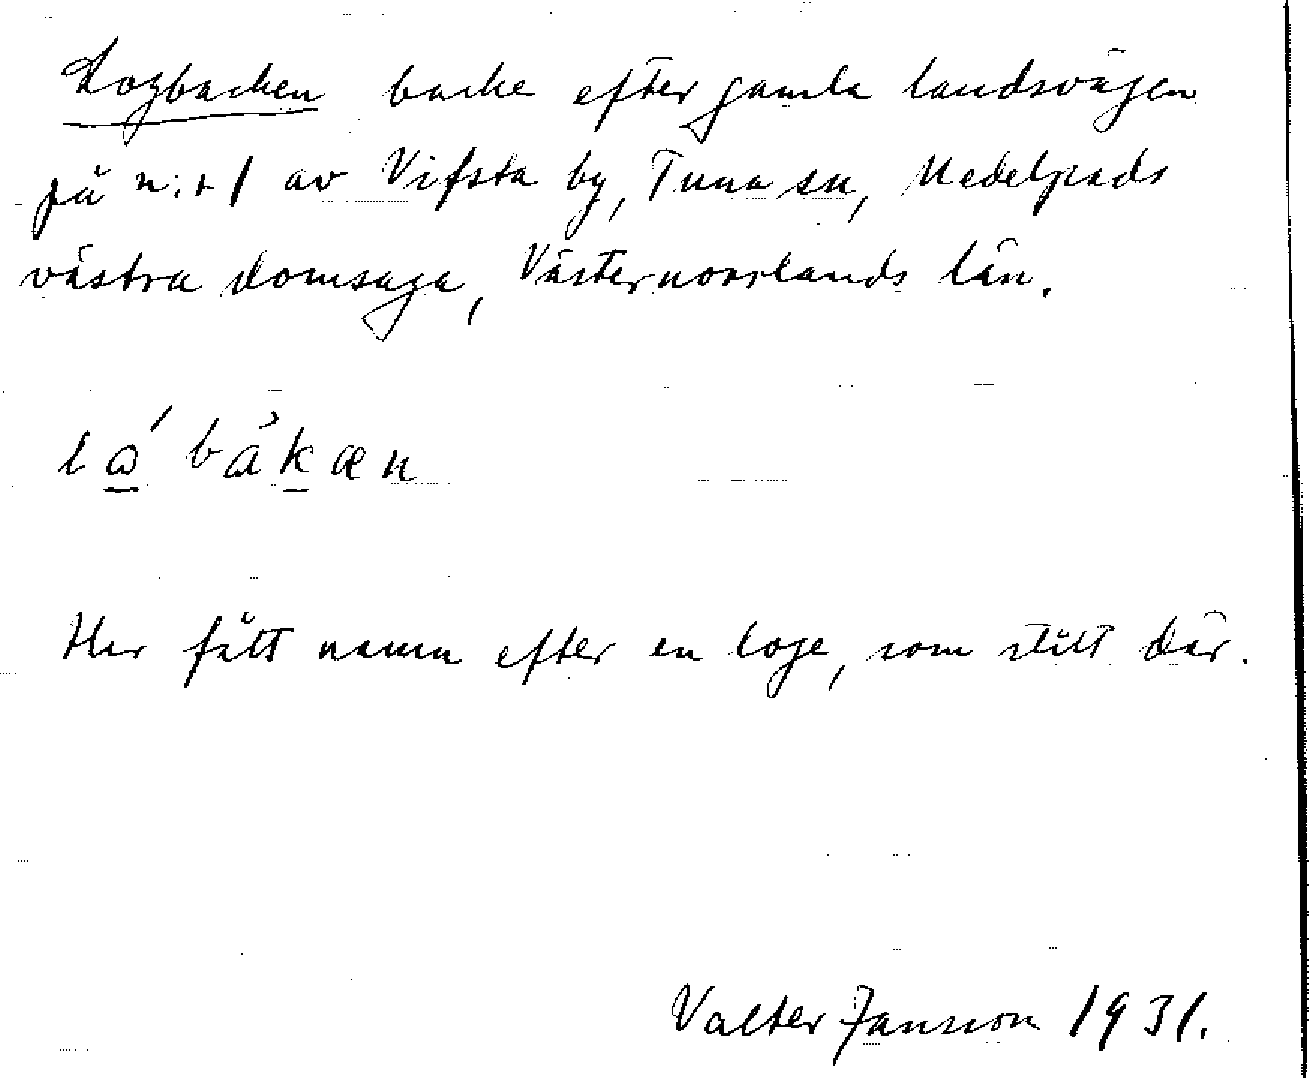 Logbacken backe efter gamla landsvägen
på n:r 1 av Vifsta by, Tuna sn, Medelpads
västra domsaga, Västernorrlands län.
lo´ bak̀æn
Har fått namn efter en loge, som stått där.
Valter Jansson 1931.